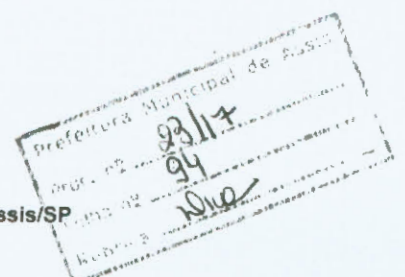 Prefeitura Municipal de Assis
Proc. nº 23/17
Folha nº 94
Rubrica
ssis/SP